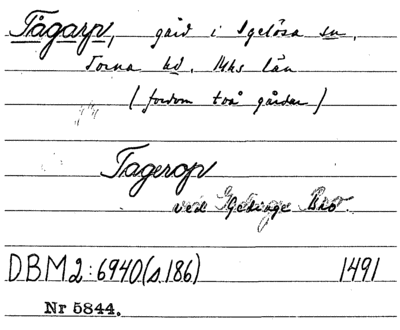 Tågarp, gård i Igelösa sn,
Torna hd. Mhs län
(fordom två gårdar)
Tagerop
ved Getinge Bro.
DBM 2:6940 (s.186) 1491
Nr 5844.